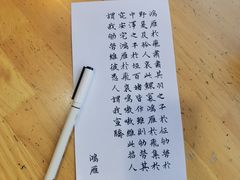 鴻雁於飛肅肅其羽之子於征劬勞於
野爰及矜人哀此鰥寡鴻雁於飛集於
中澤之子於垣百堵皆作雖則劬勞其
究安宅鴻雁於飛哀鳴嗷嗷維此哲人
謂我劬勞維彼愚人謂我宣驕
鴻雁